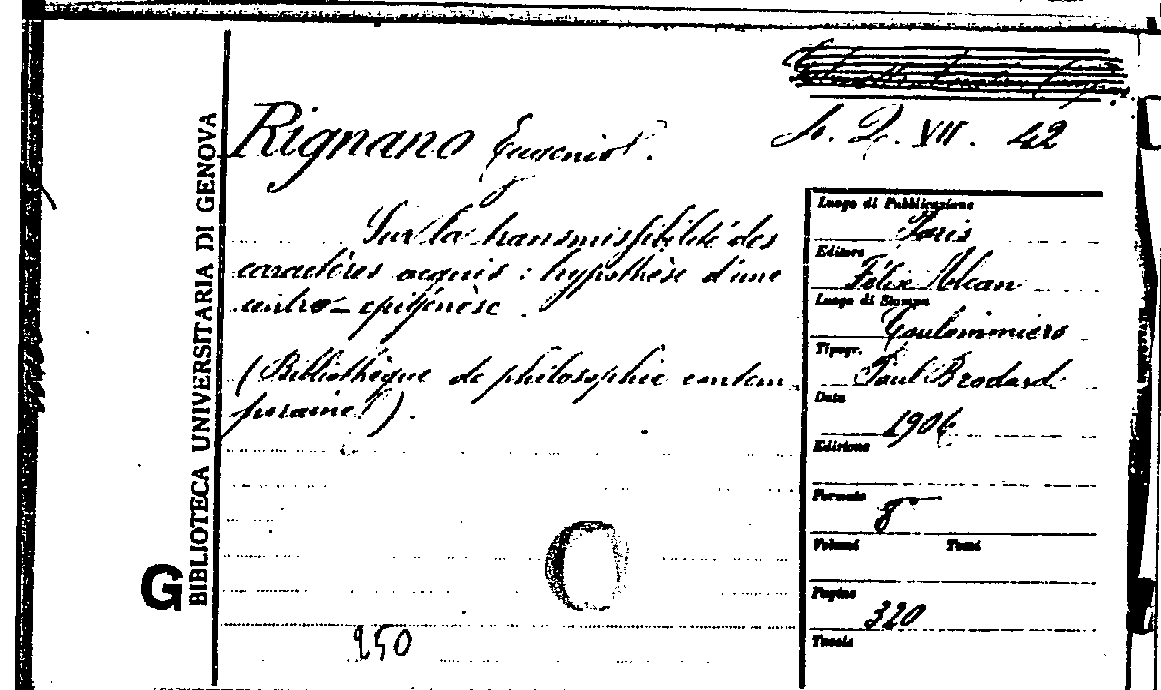 Rignano Eugenio.
XVII. 42
Sur la transmissibilité des
caractères acquis: hypothèse d'une
centro-epigénèse.
(Bibliothèque de philosophie contem
poraine).
250
G
BIBLIOTECA UNIVERSITARIA DI GENOVA
Luogo di Pubblicazione
Paris
Editore
Félix Alcan
Luogo di Stampa
Coulommiers
Tipogr.
Paul Brodard
Data
1906
Edizione
Formato
8°
Volumi Tomi
Pagine
320
Tavole